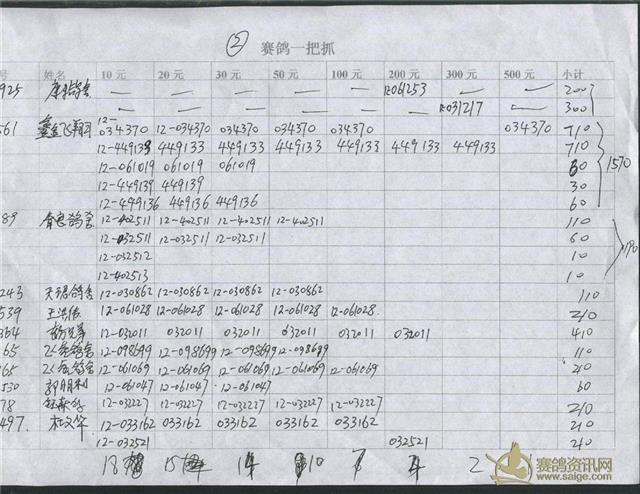 ② 赛鸽一把抓
号 姓名 10元 20元 30元 50元 100元 200元 300元 500元 小计
925 12-061253 200
12-031217 300
561 12-034370 12-034370 034370 034370 034370 034370 710
12-449133 449133 449133 449133 449133 449133 449133 710
12-061019 061019 061019 60
12-449139 449139 30
12-449136 449136 449136 60
1570
89 12-402511 12-402511 12-402511 12-402511 110
12-032511 12-032511 12-032511 60
12-032512 10
12-402513 10
190
243 12-030862 12-030862 12-030862 12-030862 110
539 12-061028 12-061028 12-061028 12-061028 12-061028 210
364 12-032011 032011 032011 032011 032011 032011 410
65 12-098699 12-098699 12-098699 12-098699 110
165 12-061069 12-061069 12-061069 12-061069 12-061069 210
530 郭朋利 12-061047 12-061047 12-061047 60
78 12-032227 12-032227 12-032227 12-032227 12-032227 210
497 杜文华 12-033162 033162 033162 033162 033162 210
12-032521 032521 210
18 15 14 10 7 4 2
赛鸽资讯网
www.saige.com